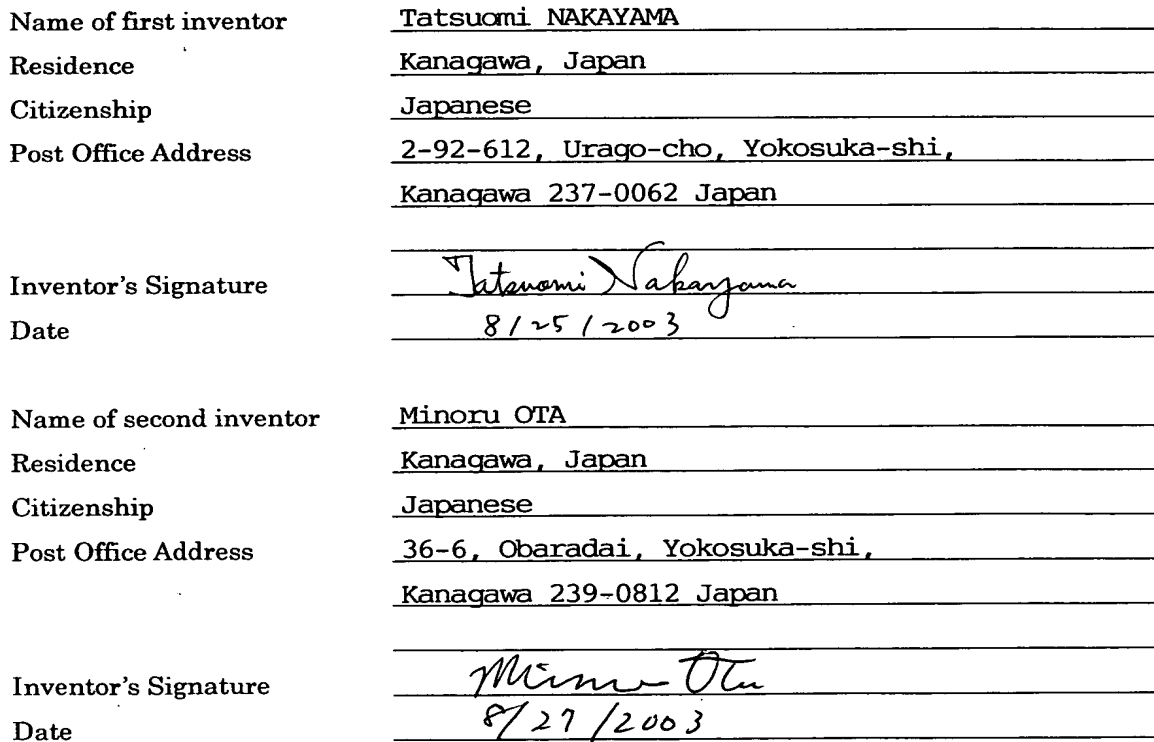 Name of first inventor Tatsuomi NAKAYAMA
Residence Kanagawa, Japan
Citizenship Japanese
Post Office Address 2-92-612, Urago-cho, Yokosuka-shi,
Kanagawa 237-0062 Japan
Inventor's Signature Tatsuomi Nakayama
Date 8/25/2003
Name of second inventor Minoru OTA
Residence Kanagawa, Japan
Citizenship Japanese
Post Office Address 36-6, Obaradai, Yokosuka-shi,
Kanagawa 239-0812 Japan
Inventor's Signature Minoru Ota
Date 8/27/2003